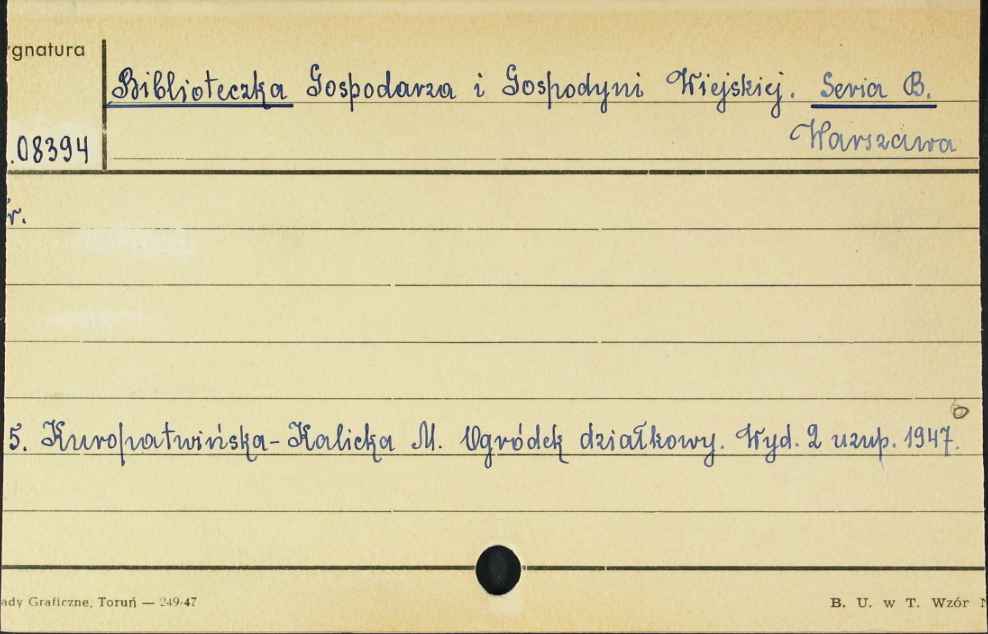 gnatura
Biblioteczka Gospodarza i Gospodyni Wiejskiej. Seria B.
Warszawa
.08394
r.
6
5. Kuropatwińska-Kalicka M. Ogródek działkowy. Wyd. 2 uzup. 1947.
ady Graficzne, Toruń — 249/47
B. U. w T. Wzór N